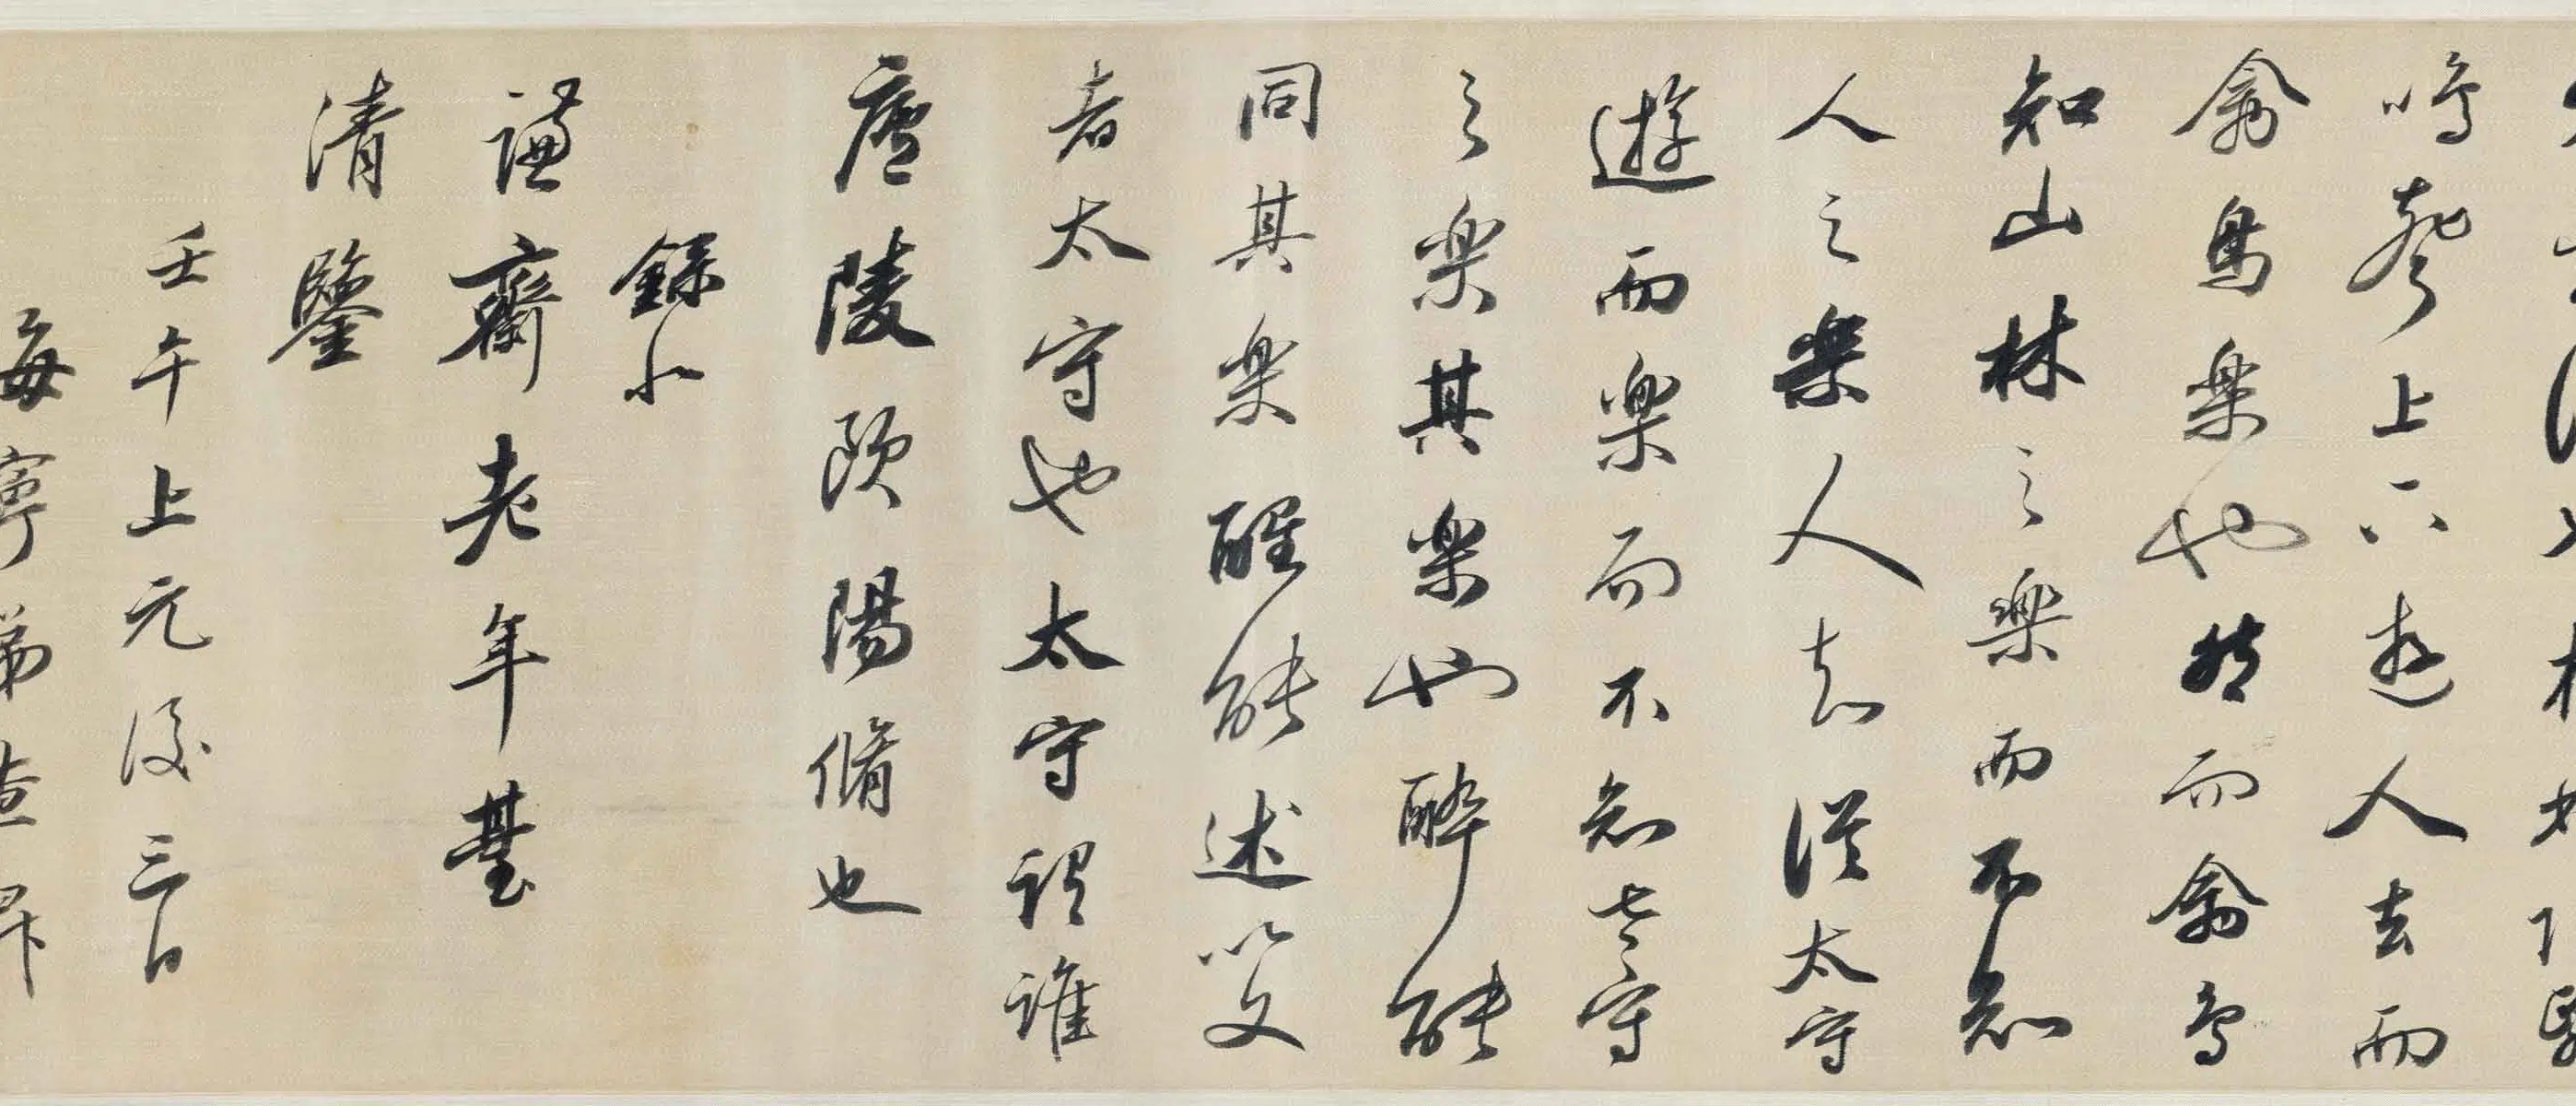 鳴聲上下遊人去而
禽鳥樂也然而禽鳥
知山林之樂而不知
人之樂人知從太守
遊而樂而不知太守
之樂其樂也醉能
同其樂醒能述以文
者太守也太守謂誰
廬陵歐陽脩也
錄似
謙齋老年臺
清鑒
壬午上元後三日
海寧弟查昇